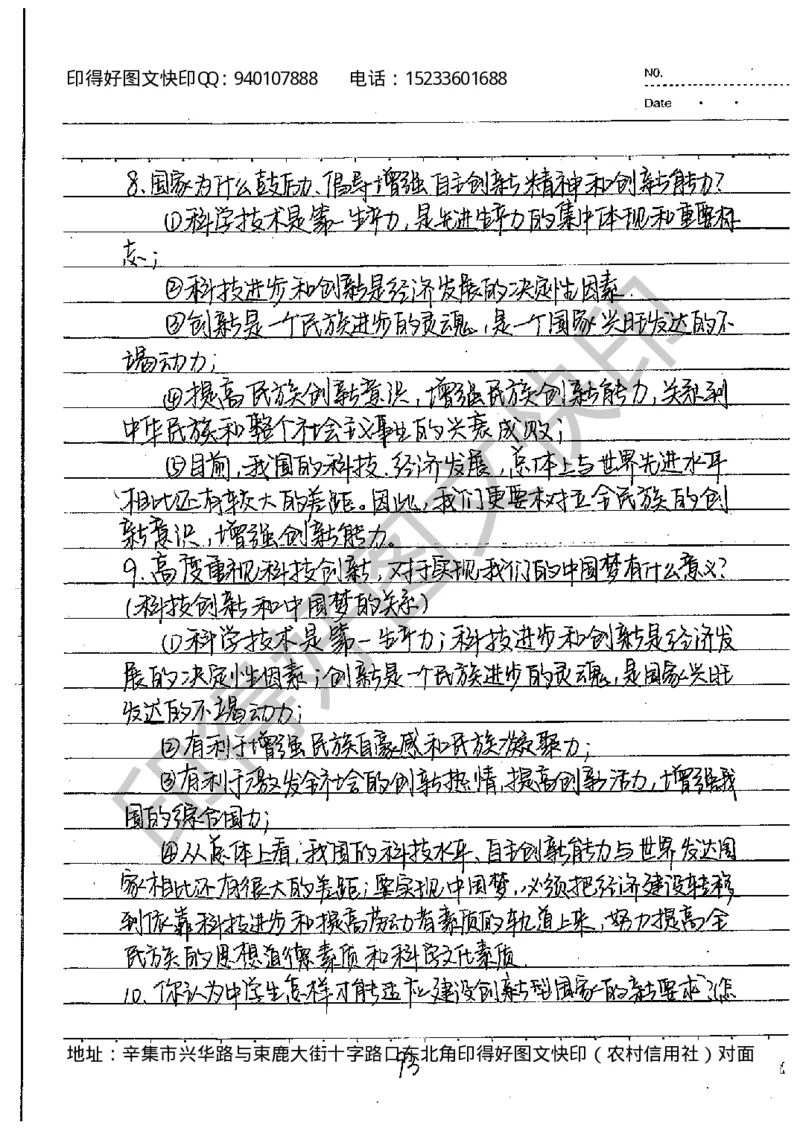 印得好图文快印QQ：940107888 电话：15233601688
NO.
Date
8、国家为什么鼓励、倡导增强自主创新精神和创新能力？
①科学技术是第一生产力，是先进生产力的集中体现和重要标
志；
②科技进步和创新是经济发展的决定性因素．
③创新是一个民族进步的灵魂，是一个国家兴旺发达的不
竭动力；
④提高民族创新意识，增强民族创新能力，关系到
中华民族和整个社会主义事业的兴衰成败；
⑤目前，我国的科技、经济发展，总体上与世界先进水平
相比还有较大的差距。因此，我们更要树立全民族的创
新意识，增强创新能力。
9、高度重视科技创新，对于实现我们的中国梦有什么意义？
（科技创新和中国梦的关系）
①科学技术是第一生产力；科技进步和创新是经济发
展的决定性因素；创新是一个民族进步的灵魂，是国家兴旺
发达的不竭动力；
②有利于增强民族自豪感和民族凝聚力；
③有利于激发全社会的创新热情，提高创新活力，增强我
国的综合国力；
④从总体上看，我国的科技水平、自主创新能力与世界发达国
家相比还有很大的差距；要实现中国梦，必须把经济建设转移
到依靠科技进步和提高劳动者素质的轨道上来，努力提高全
民族的思想道德素质和科学文化素质．
10、你认为中学生怎样才能适应建设创新型国家的新要求？（怎
地址：辛集市兴华路与束鹿大街十字路口东北角印得好图文快印（农村信用社）对面
93
印得好图文快印